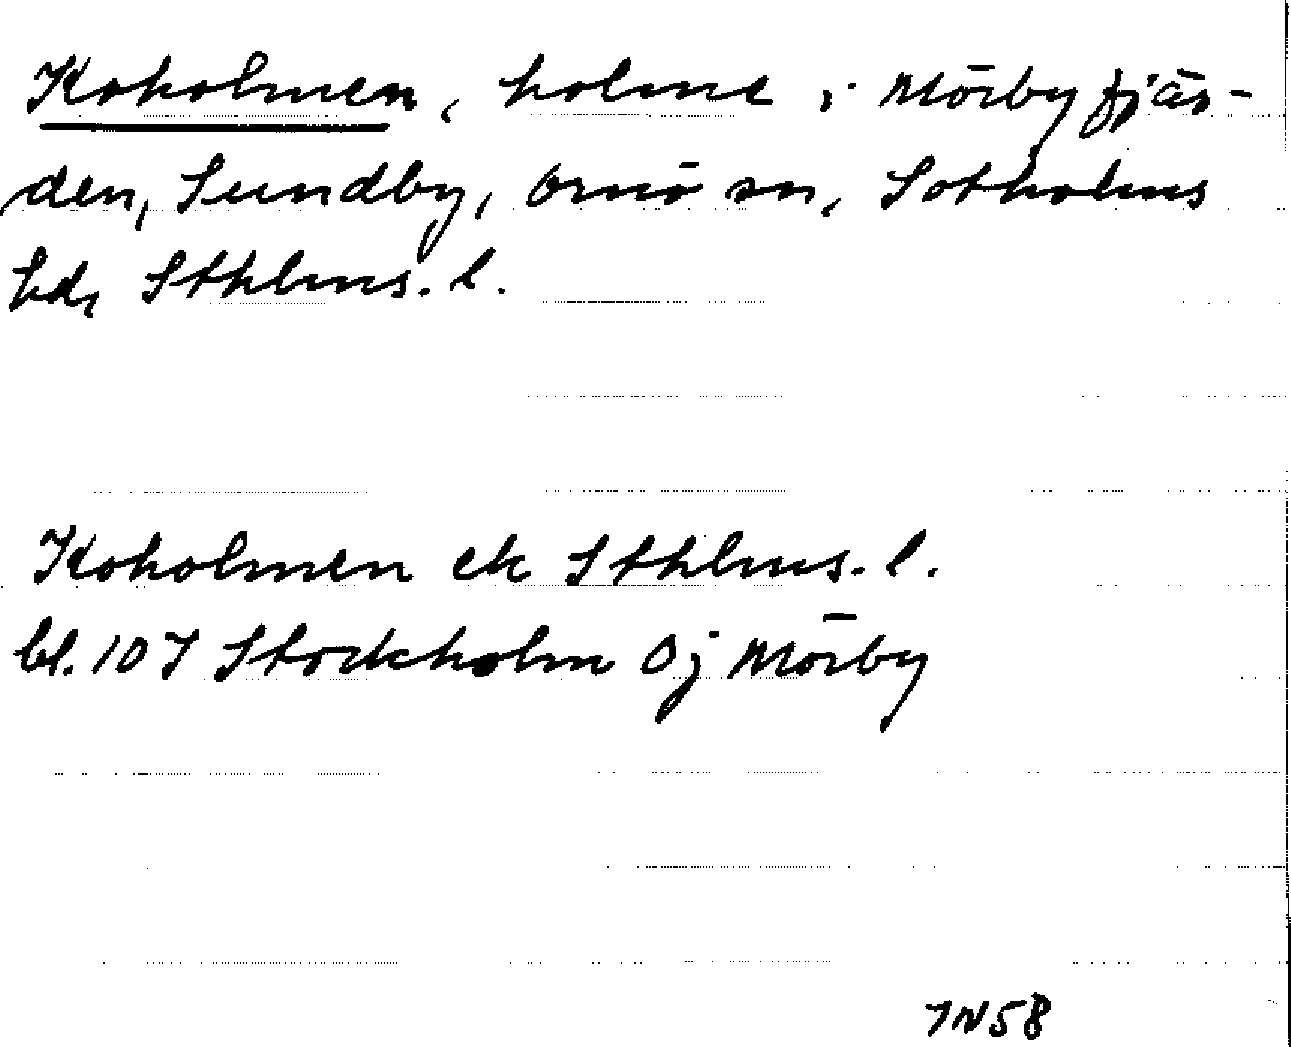 Koholmen, holme i Mörbyfjär-
den, Sundby, Ornö sn, Sotholms
hd, Sthlms. l.
Koholmen ek Sthlms. l.
bl. 107 Stockholm Oj Mörby
IN58